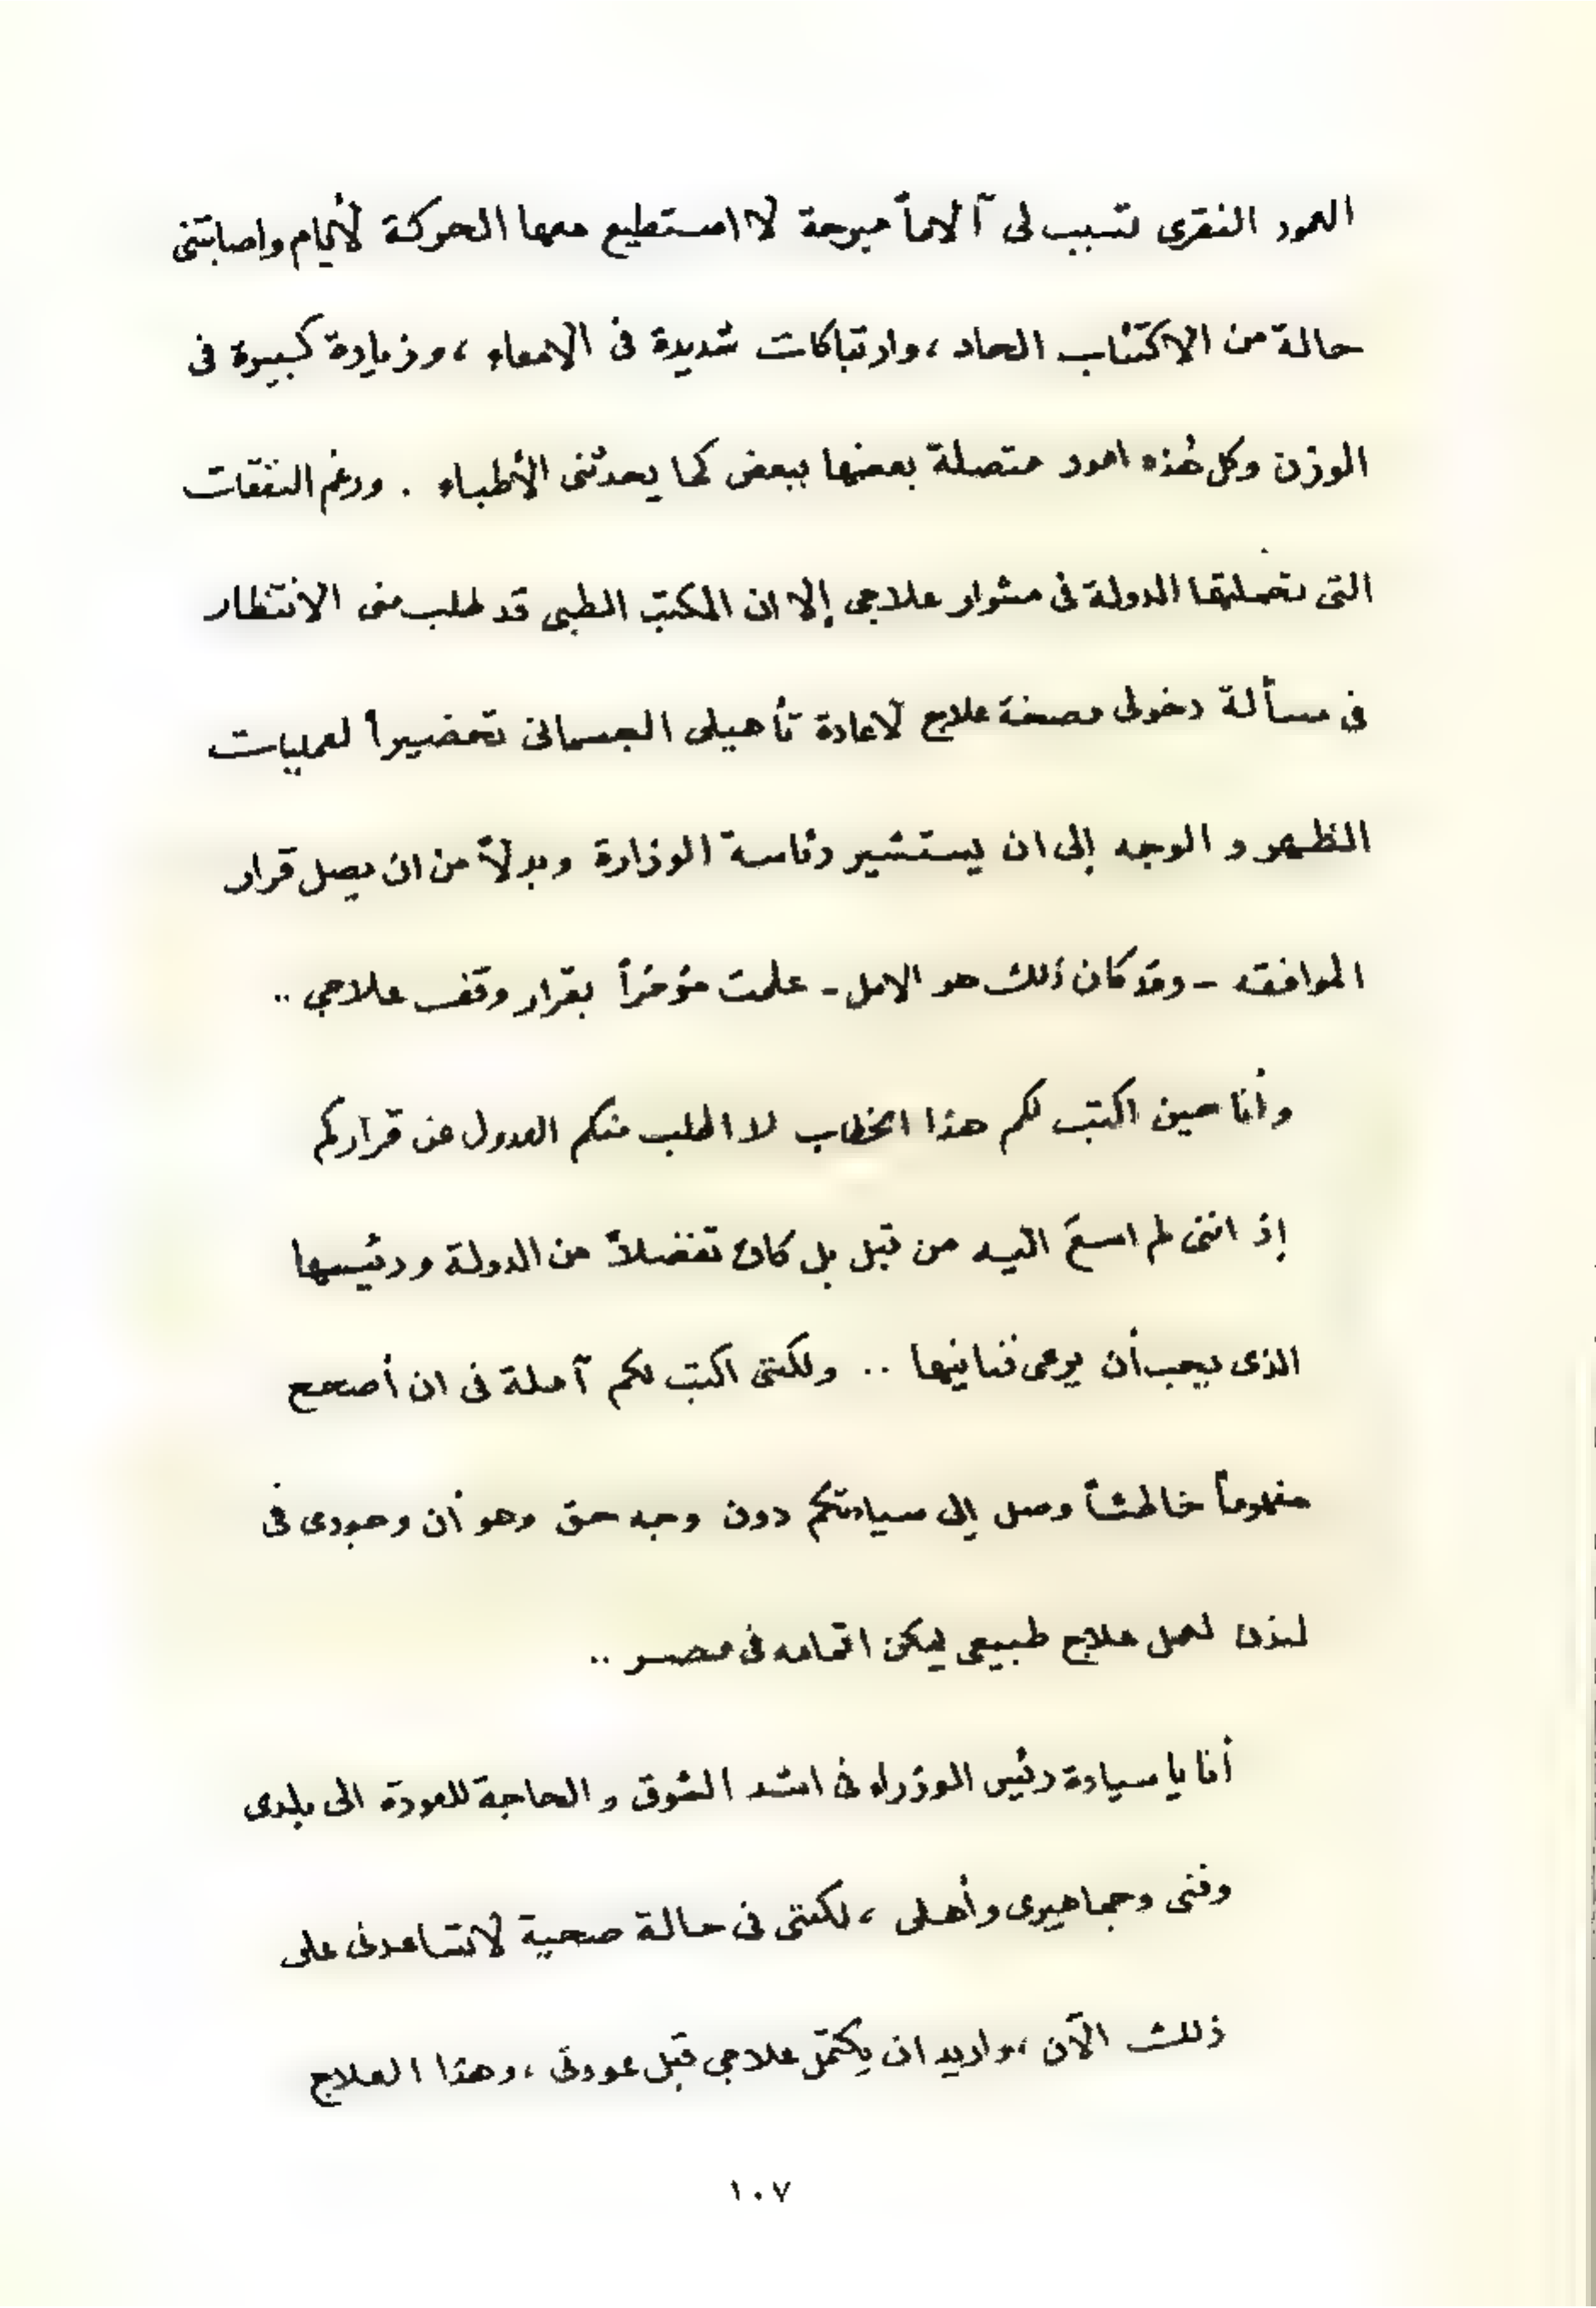 العمود الفقرى تسبب لى آلاماً مبرحة لا استطيع معها الحركة لأيام واصابتنى
حالة من الاكتئاب الحاد ، وارتباكات شديدة فى الامعاء ، وزيادة كبيرة فى
الوزن وكل هذه امور متصلة بعضها ببعض كما يحدثنى الأطباء . ورغم النفقات
التى تحملتها الدولة فى مشوار علاجى إلا ان المكتب الطبى قد طلب منى الانتظار
فى مسألة دخولى مصحة علاج لاعادة تأهيلى الجسمانى تحضيراً لعمليات
الظهر و الوجه إلى ان يستشير رئاسة الوزارة وبدلاً من ان يصل قرار
الموافقه - وقد كان ذلك هو الامل - علمت مؤخراً بقرار وقف علاجي ..
وأنا حين اكتب لكم هذا الخطاب لا اطلب منكم العدول عن قراركم
إذ اننى لم اسعَ اليه من قبل بل كان تفضلاً من الدولة ورئيسها
الذى يجب أن يرعى فنانيها .. ولكنى اكتب لكم آملة فى ان أصحح
مفهوماً خاطئاً وصل إلى سيادتكم دون وجه حق وهو أن وجودى فى
لندن لعمل علاج طبيعى يمكن اتمامه فى مصر ..
أنا يا سيادة رئيس الوزراء فى اشد الشوق و الحاجة للعودة الى بلدى
وفنى وجماهيرى وأهلى ، لكننى فى حالة صحية لا تساعدنى على
ذلك الآن ، واريد ان يكتمل علاجي قبل عودتى ، وهذا العلاج
١٠٧